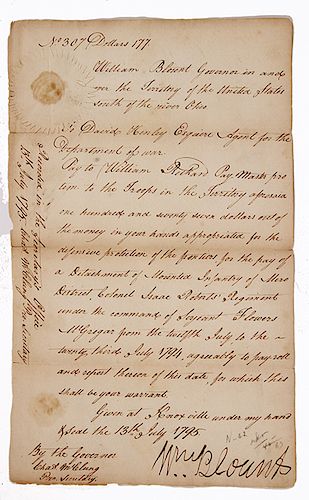 No 307 Dollars 177
William Blount Governor in and
over the Territory of the United States
South of the river Ohio
To David Henley Esquire Agent for the
Department of war
Pay to William Rickard Pay Master pro
tem to the Troops in the Territory aforesaid
one hundred and seventy seven dollars out of
the money in your hands appropriated for the
defensive protection of the frontiers for the pay of
a Detachment of Mounted Infantry of Mero
District, Colonel Isaac Roberts' Regiment
under the command of Serjeant Flowers
McGregor from the twelfth July to the
twenty third July 1794 agreeably to pay roll
and report thereon of this date, for which this
shall be your warrant.
Given at Knoxville under my hand
& seal the 13th July 1795
Wm Blount
By the Governor
Chas McClung
Pro. Secretary
Recorded in the Secretary's Office
13th July 1795 Chas McClung
Pro. Secretary